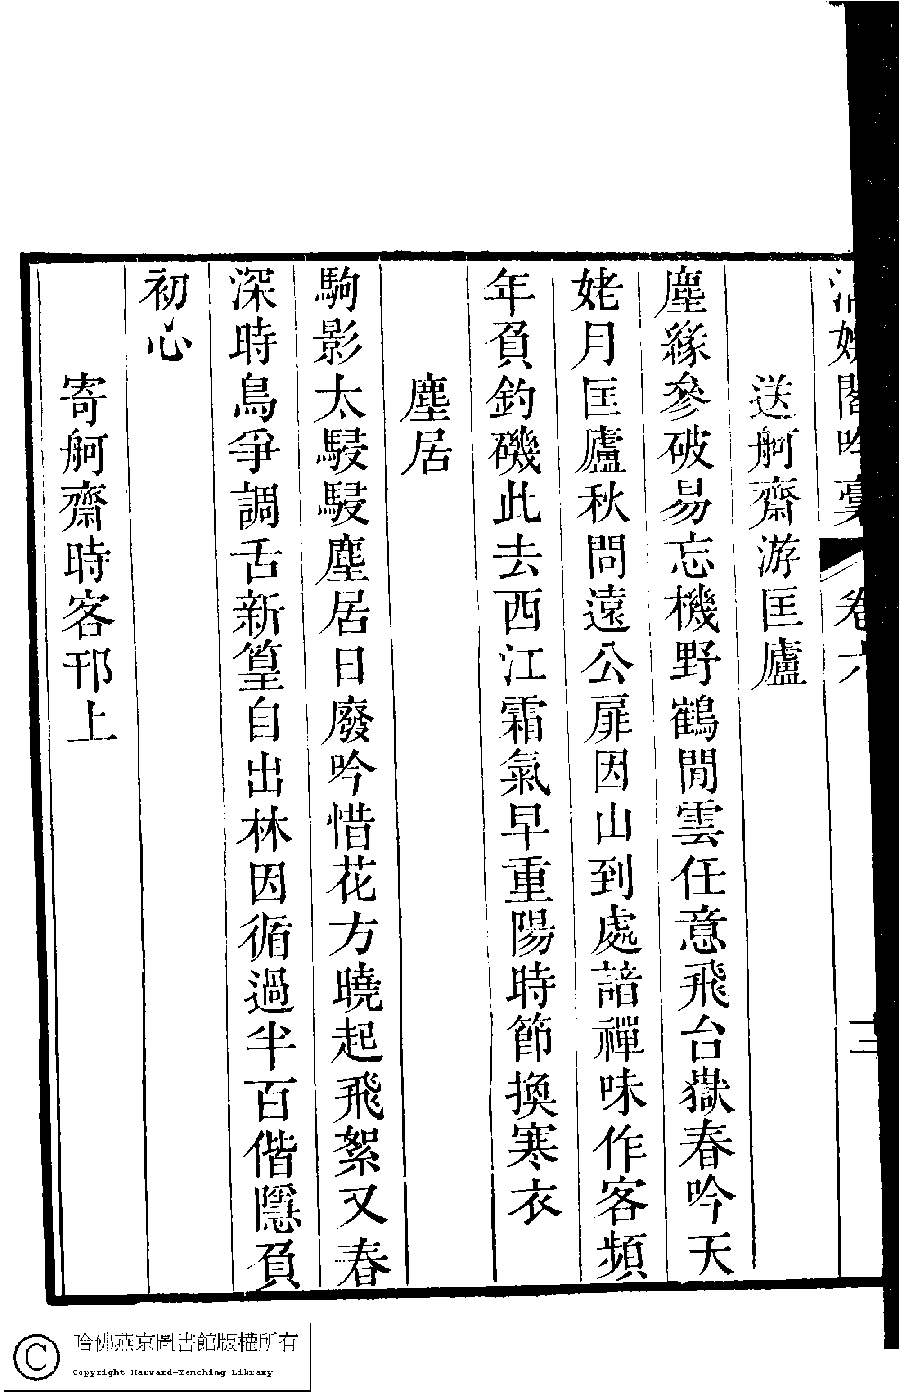 清娛閣吟稾 卷六 三
送舸齋游匡廬
塵緣參破易忘機野鶴閒雲任意飛台嶽春吟天
姥月匡廬秋問遠公扉因山到處諳禪味作客頻
年負釣磯此去西江霜氣早重陽時節換寒衣
塵居
駒影太駸駸塵居日廢吟惜花方曉起飛絮又春
深時鳥爭調舌新篁自出林因循過半百偕隱負
初心
寄舸齋時客邗上
哈佛燕京圖書館版權所有
Copyright Harvard-Yenching Library